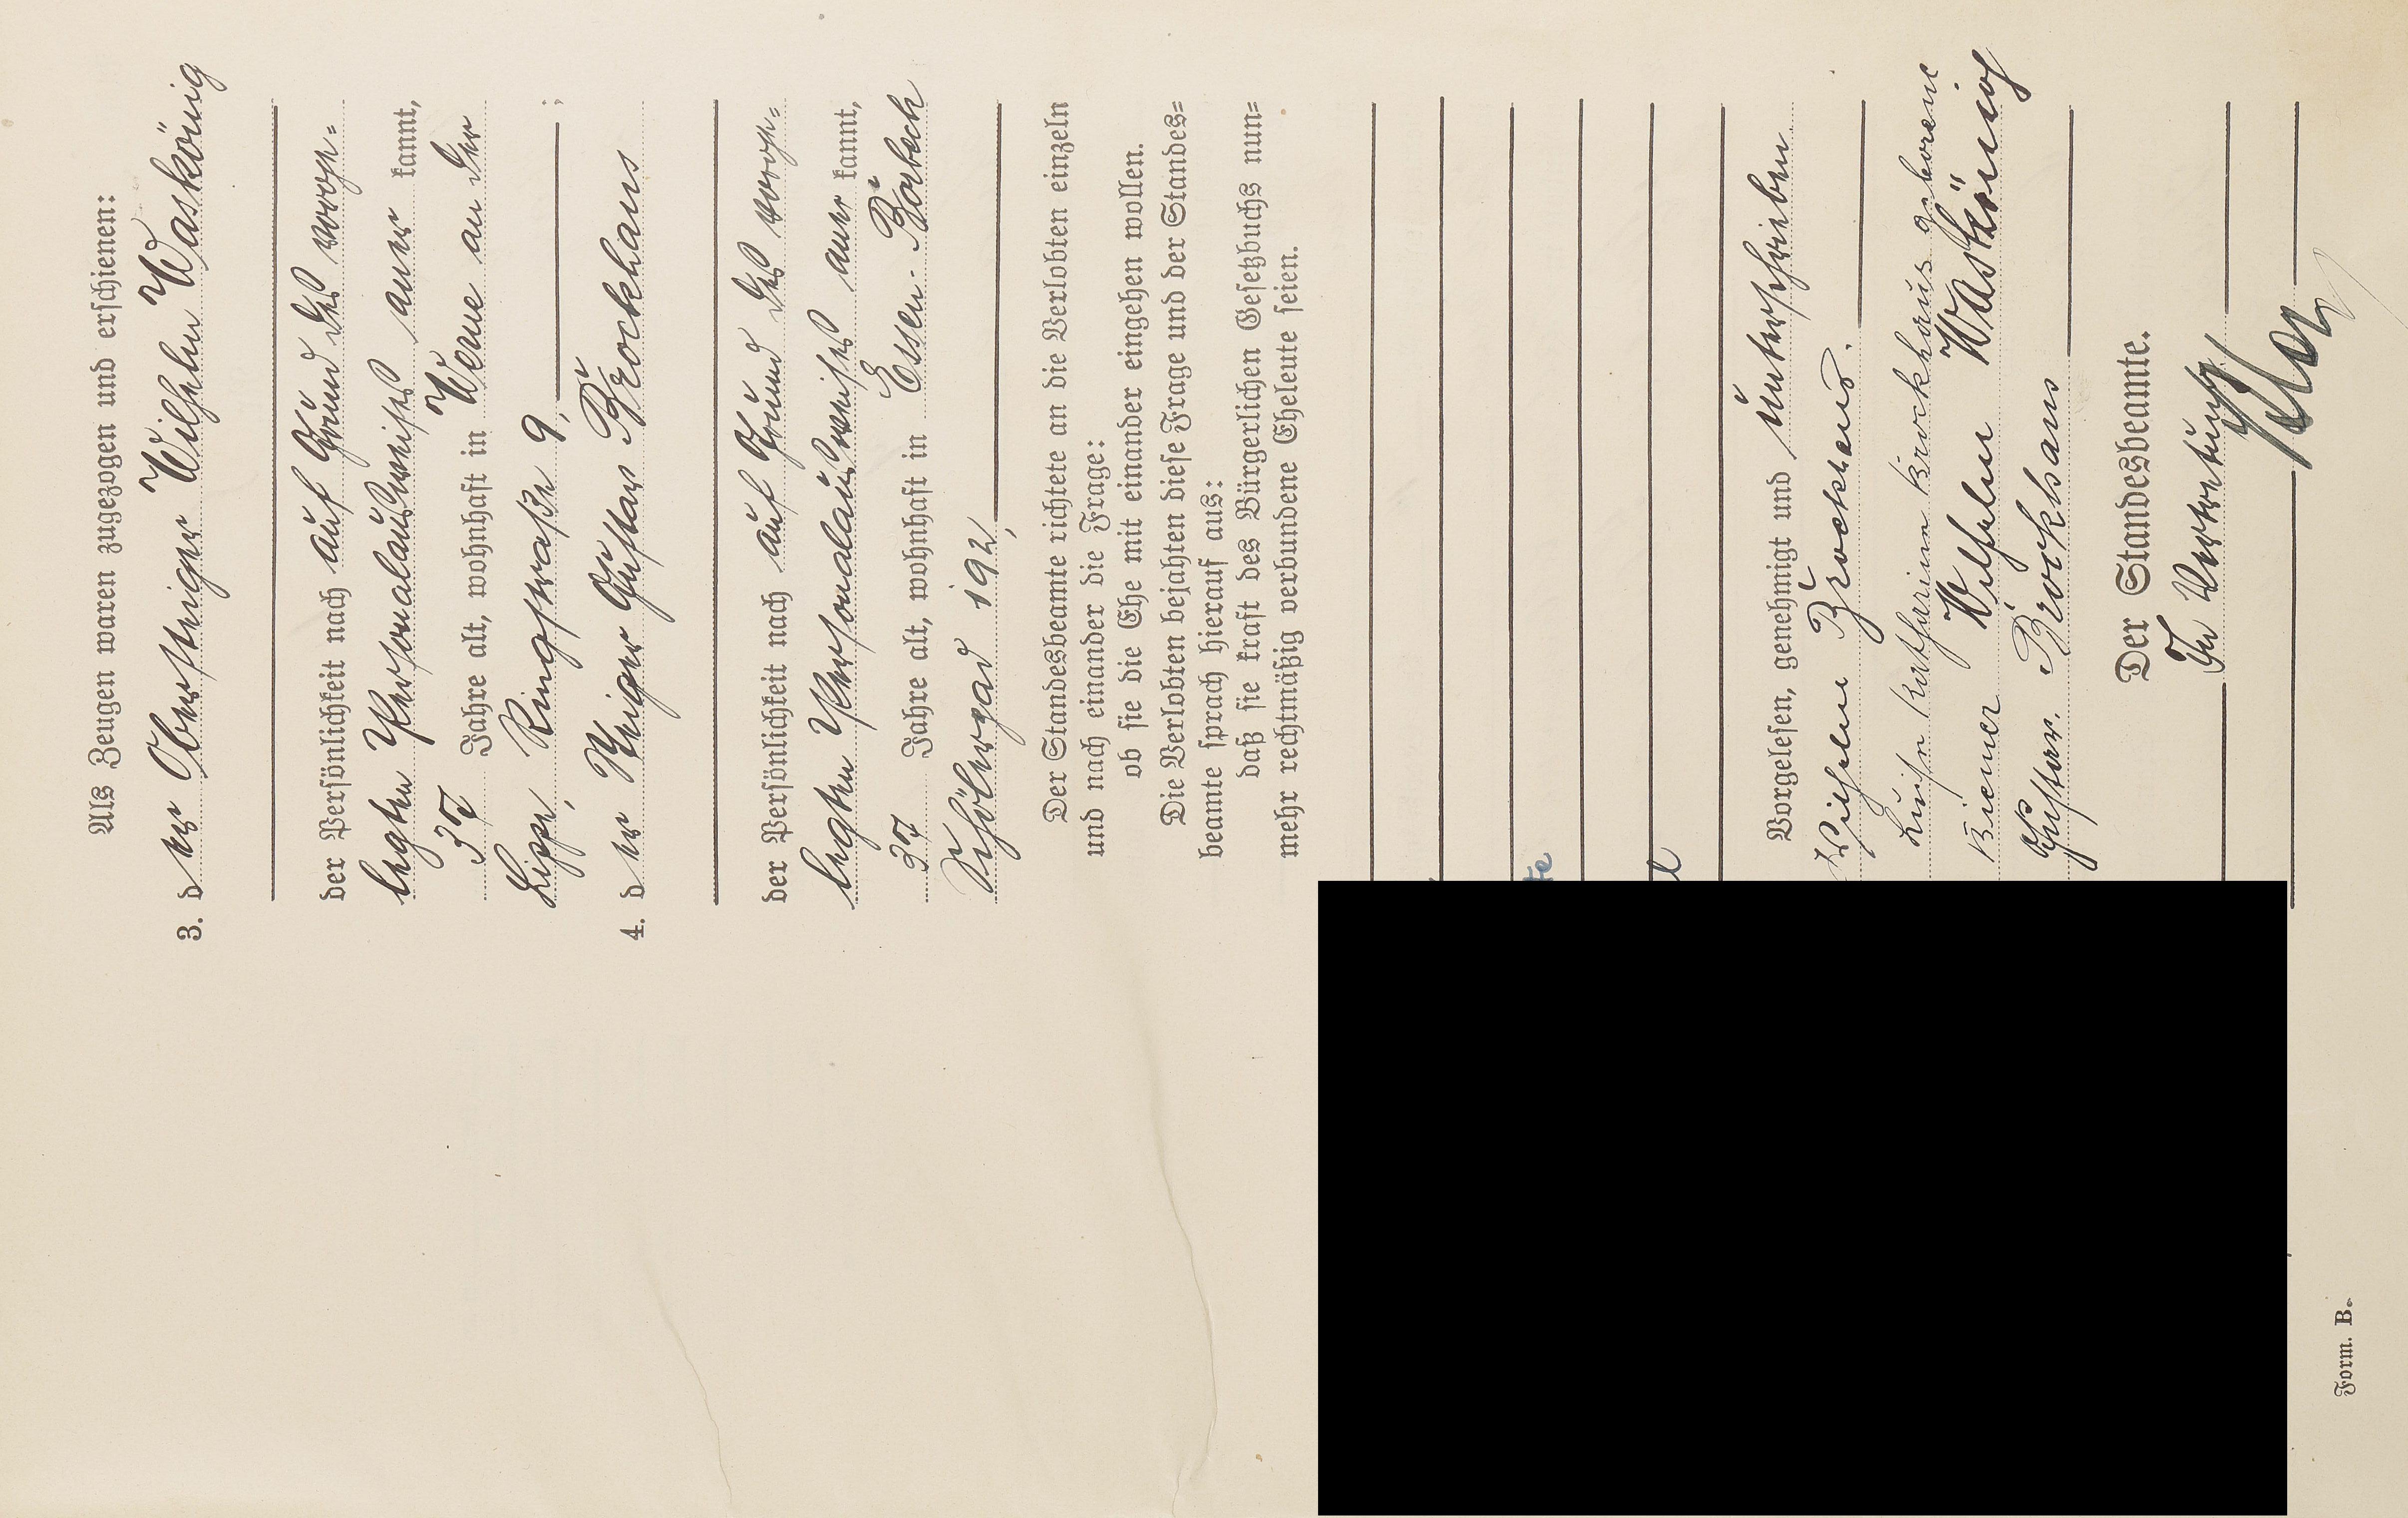 Als Zeugen waren zugezogen und erschienen:
3. der Obersteiger Wilhelm Waskönig
der Persönlichkeit nach auf Grund des vorge=
legten Personalausweises aner kannt,
37 Jahre alt, wohnhaft in Werne an der
Lippe, Ringstraße 9, ;
4. der Steiger Gustav Brockhaus
der Persönlichkeit nach auf Grund des vorge=
legten Personalausweises aner kannt,
37 Jahre alt, wohnhaft in Essen-Borbeck
Schölerpad 192,
Der Standesbeamte richtete an die Verlobten einzeln
und nach einander die Frage:
ob sie die Ehe mit einander eingehen wollen.
Die Verlobten bejahten diese Frage und der Standes=
beamte sprach hierauf aus:
daß sie kraft des Bürgerlichen Gesetzbuchs nun=
mehr rechtmäßig verbundene Eheleute seien.
Vorgelesen, genehmigt und unterschrieben
Wilhelm Brockhaus.
Luise Katharina Brockhaus geborene
Wilhelm Waskönig
Gustav Brockhaus
Der Standesbeamte.
In Vertretung
Form. B.